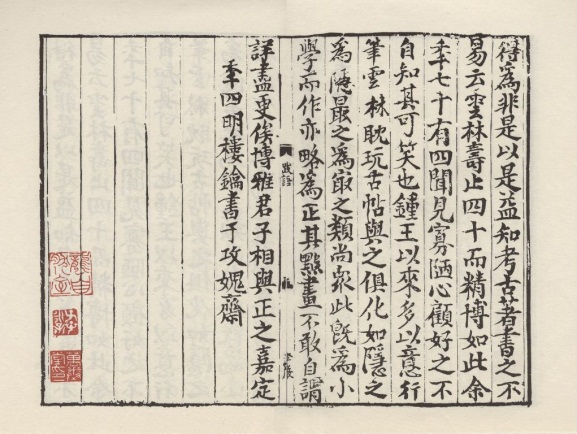 得為非是以是益知考古著書之不
易云雲林壽止四十而精博如此余
秊七十有四聞見寡陋心顧好之不
自知其可笑也鍾王以來多以意行
筆雲林耽玩古帖與之俱化如隱之
為隐最之為冣之類尚衆此旣為小
學而作亦略為正其點畫不敢自謂
跋語
詳盡更俟博雅君子相與正之嘉定
秊四明樓鑰書于攻媿齋